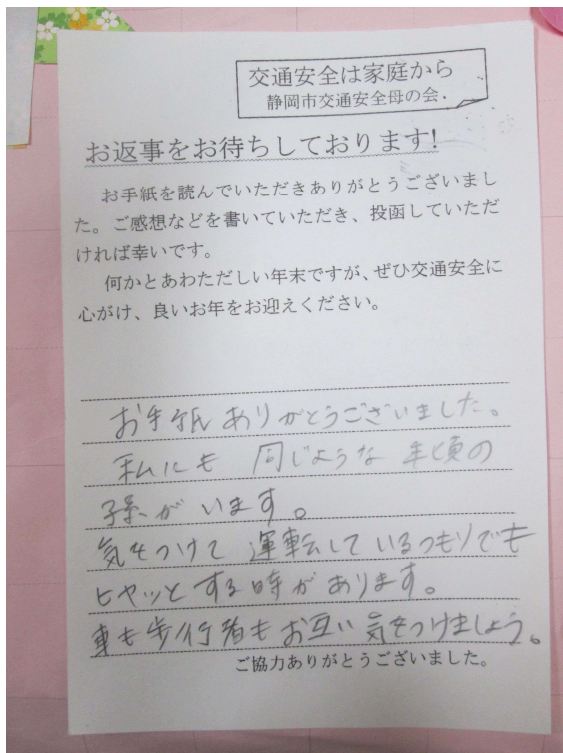 交通安全は家庭から
静岡市交通安全母の会.
お返事をお待ちしております!
お手紙を読んでいただきありがとうございまし
た。ご感想などを書いていただき、投函していただ
ければ幸いです。
何かとあわただしい年末ですが、ぜひ交通安全に
心がけ、良いお年をお迎えください。
お手紙ありがとうございました。
私にも 同じような 年頃の
孫がいます。
気をつけて 運転しているつもりでも
ヒヤッとする時があります。
車も歩行者もお互い気をつけましょう。
ご協力ありがとうございました。